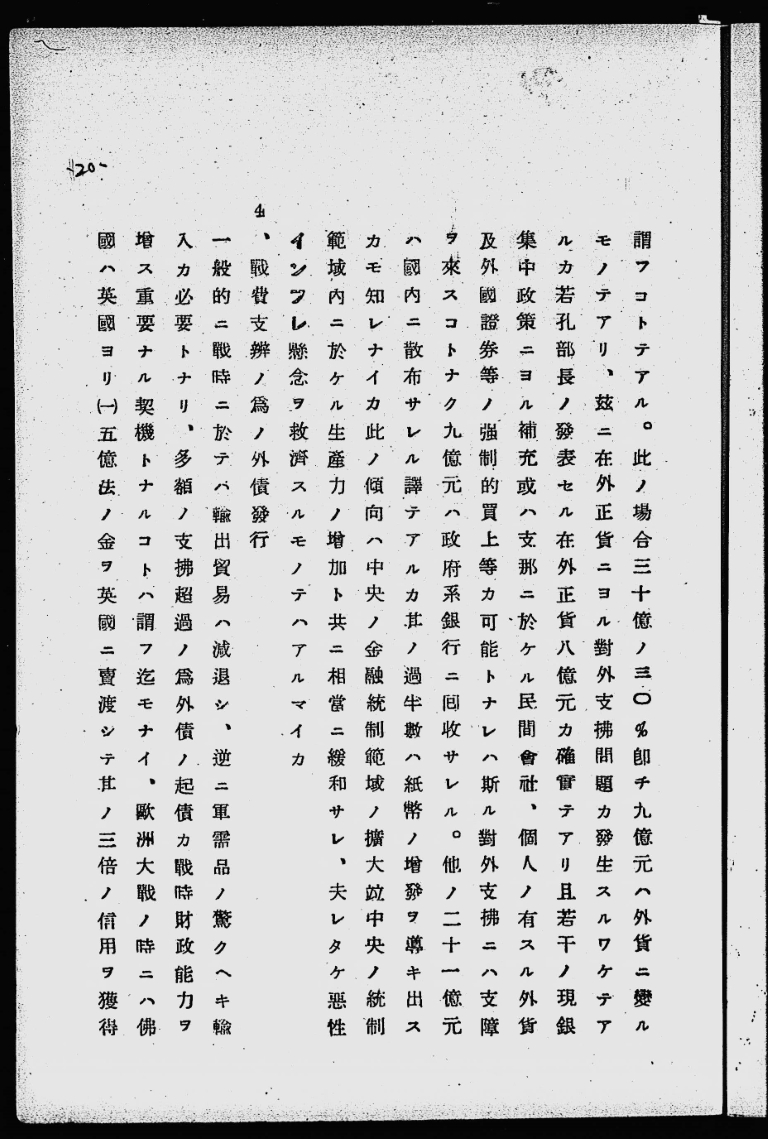 謂フコトテアル。此ノ場合三十億ノ三〇％卽チ九億元ハ外貨ニ變ル
モノテアリ、玆ニ在外正貨ニヨル對外支拂問題カ發生スルワケテア
ルカ若孔部長ノ發表セル在外正貨八億元カ確實テアリ且若干ノ現銀
集中政策ニヨル補充或ハ支那ニ於ケル民間會社、個人ノ有スル外貨
及外國證券等ノ强制的買上等カ可能トナレハ斯ル對外支拂ニハ支障
ヲ來スコトナク九億元ハ政府系銀行ニ囘收サレル。他ノ二十一億元
ハ國內ニ散布サレル譯テアルカ其ノ過半數ハ紙幣ノ增發ヲ導キ出ス
カモ知レナイカ此ノ傾向ハ中央ノ金融統制範域ノ擴大竝中央ノ統制
範域內ニ於ケル生產力ノ增加ト共ニ相當ニ緩和サレ、夫レタケ惡性
インフレ懸念ヲ救濟スルモノテハアルマイカ
4、戰費支辨ノ爲ノ外債發行
一般的ニ戰時ニ於テハ輸出貿易ハ減退シ、逆ニ軍需品ノ驚クヘキ輸
入カ必要トナリ、多額ノ支拂超過ノ爲外債ノ起債カ戰時財政能力ヲ
增ス重要ナル契機トナルコトハ謂フ迄モナイ、歐洲大戰ノ時ニハ佛
國ハ英國ヨリ㈠五億法ノ金ヲ英國ニ賣渡シテ其ノ三倍ノ信用ヲ獲得
-20-